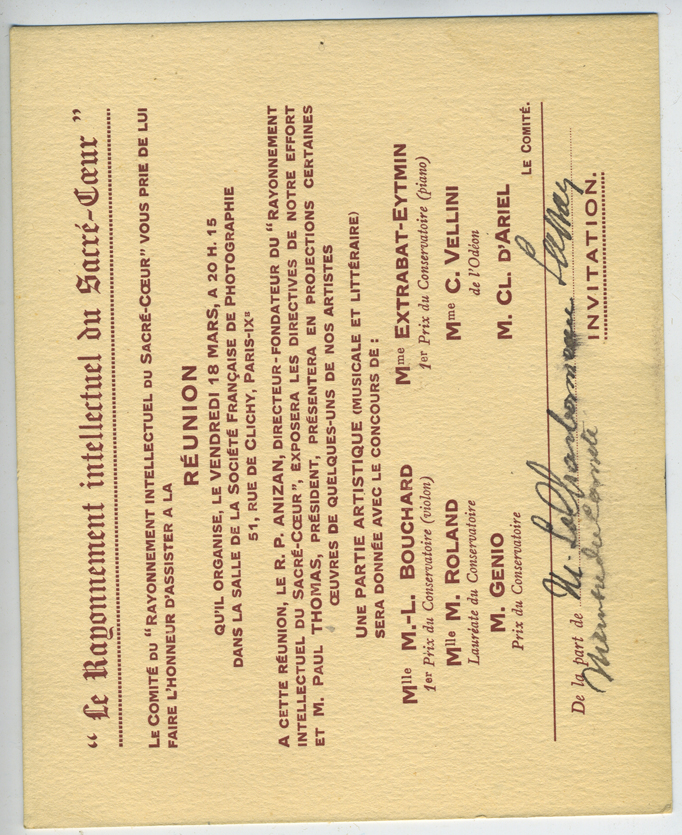 “ Le Rayonnement intellectuel du Sacré-Cœur ”
LE COMITÉ DU “ RAYONNEMENT INTELLECTUEL DU SACRÉ-CŒUR ” VOUS PRIE DE LUI
FAIRE L'HONNEUR D'ASSISTER A LA
RÉUNION
QU'IL ORGANISE, LE VENDREDI 18 MARS, A 20 H. 15
DANS LA SALLE DE LA SOCIÉTÉ FRANÇAISE DE PHOTOGRAPHIE
51, RUE DE CLICHY, PARIS-IXe
A CETTE RÉUNION, LE R. P. ANIZAN, DIRECTEUR-FONDATEUR DU “ RAYONNEMENT
INTELLECTUEL DU SACRÉ-CŒUR ”, EXPOSERA LES DIRECTIVES DE NOTRE EFFORT
ET M. PAUL THOMAS, PRÉSIDENT, PRÉSENTERA EN PROJECTIONS CERTAINES
ŒUVRES DE QUELQUES-UNS DE NOS ARTISTES
UNE PARTIE ARTISTIQUE (MUSICALE ET LITTÉRAIRE)
SERA DONNÉE AVEC LE CONCOURS DE :
Mlle M.-L. BOUCHARD
1er Prix du Conservatoire (violon)
Mlle M. ROLAND
Lauréate du Conservatoire
M. GENIO
Prix du Conservatoire
Mme EXTRABAT-EYTMIN
1er Prix du Conservatoire (piano)
Mme C. VELLINI
de l'Odéon
M. CL. D'ARIEL
LE COMITÉ.
De la part de M.
membre du Comité
INVITATION.